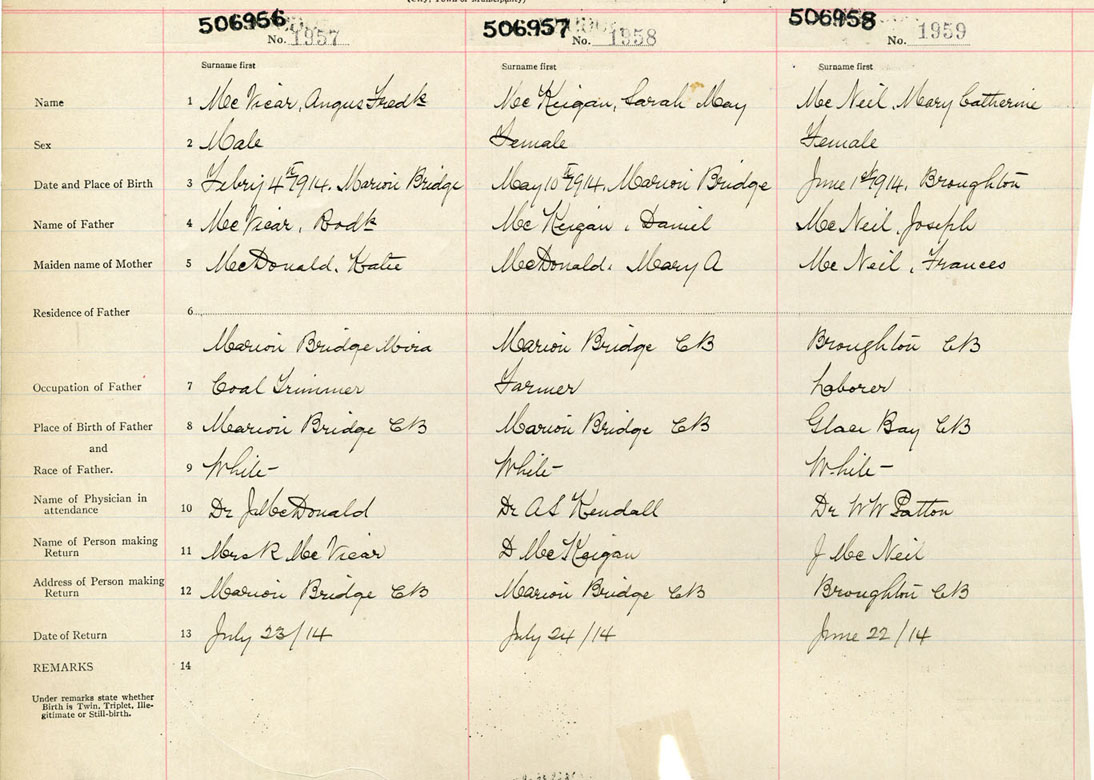 (City, Town or Municipality)
506956 506957 506958
No. 1957 No. 1958 No. 1959
Surname first Surname first Surname first
Name 1 McVicar, Angus Fredk McKeigan, Sarah May McNeil, Mary Catherine
Sex 2 Male Female Female
Date and Place of Birth 3 Febry 4th 1914. Marion Bridge May 10th 1914. Marion Bridge June 1st 1914. Broughton
Name of Father 4 McVicar, Rodk McKeigan, Daniel McNeil, Joseph
Maiden name of Mother 5 McDonald, Katie McDonald, Mary A McNeil, Frances
Residence of Father 6
Marion Bridge Mira Marion Bridge CB Broughton CB
Occupation of Father 7 Coal Trimmer Farmer Laborer
Place of Birth of Father 8 Marion Bridge CB Marion Bridge CB Glace Bay CB
and
Race of Father. 9 White White White
Name of Physician in
attendance 10 Dr J McDonald Dr AS Kendall Dr WW Patton
Name of Person making
Return 11 Mrs R McVicar D McKeigan J McNeil
Address of Person making
Return 12 Marion Bridge CB Marion Bridge CB Broughton CB
Date of Return 13 July 23/14 July 24/14 June 22/14
REMARKS 14
Under remarks state whether
Birth is Twin, Triplet, Ille-
gitimate or Still-birth.